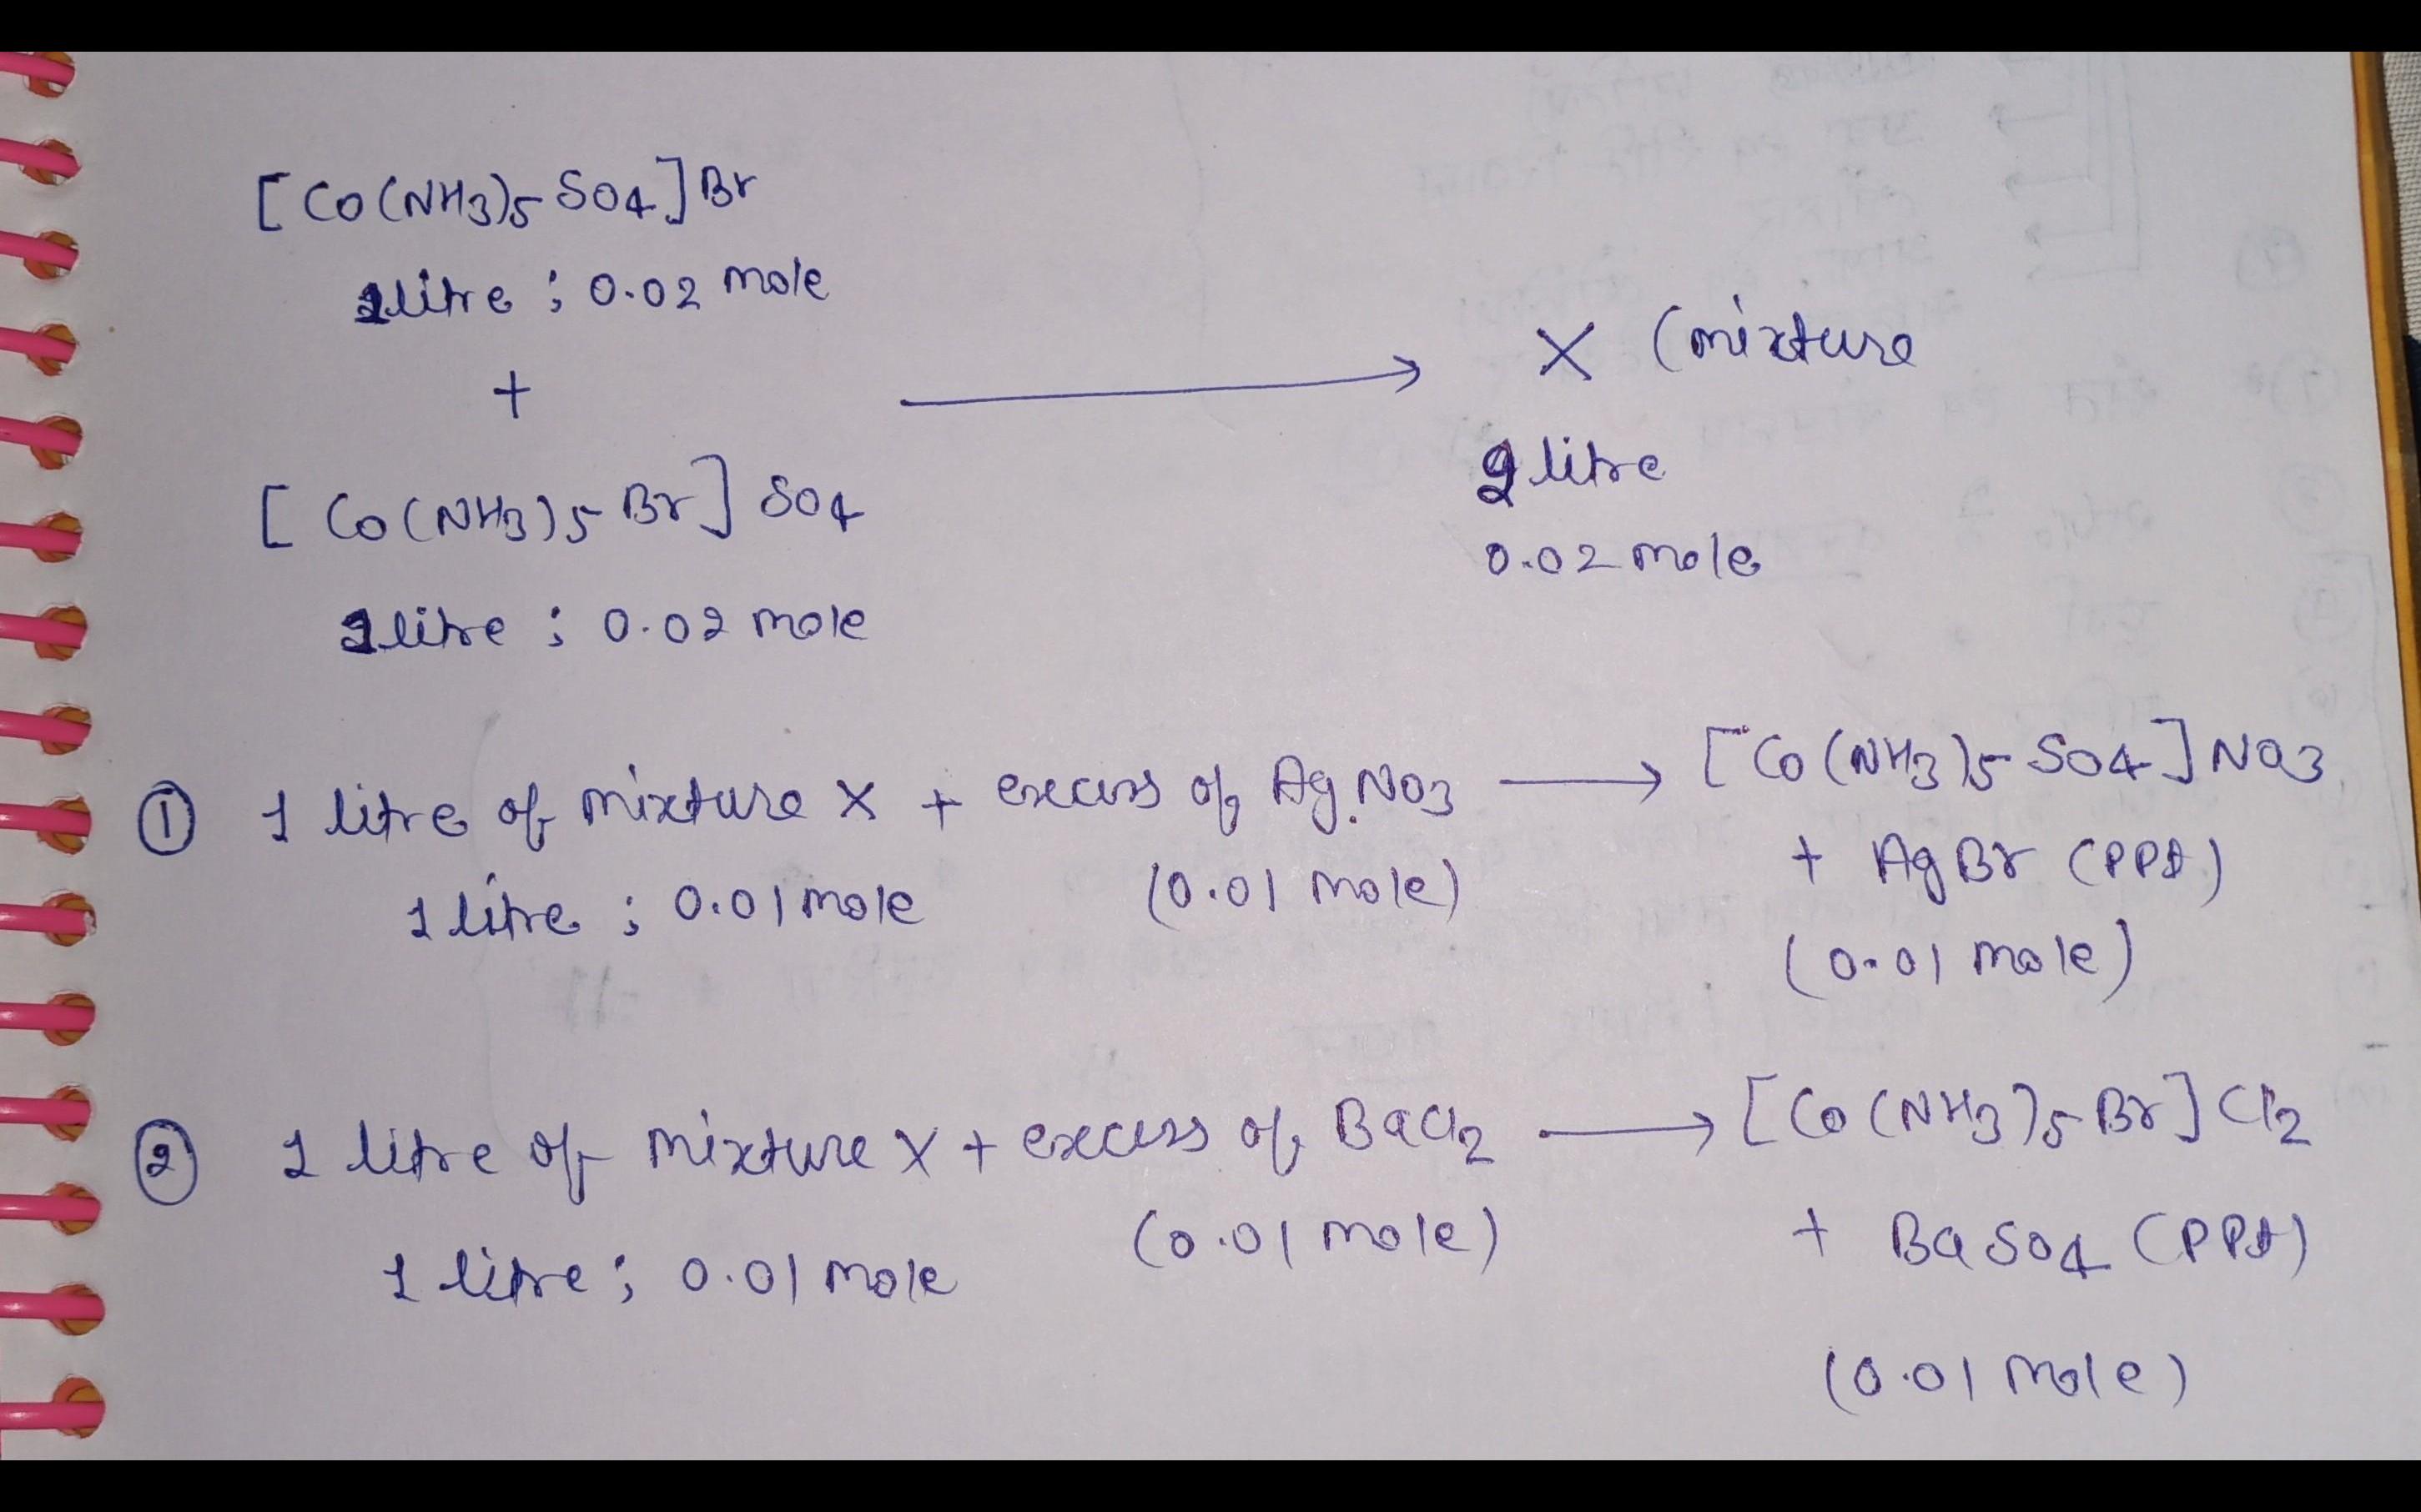 [Co(NH3)5 SO4]Br
1litre ; 0.02 mole
+
X (mixture
[Co(NH3)5 Br] SO4
2 litre
0.02 mole
1litre ; 0.02 mole
① 1 litre of mixture X + excess of AgNO3 → [Co(NH3)5 SO4]NO3
+ AgBr (PPt)
1 litre ; 0.01 mole (0.01 mole)
(0.01 mole)
② 1 litre of mixture X + excess of BaCl2 → [Co(NH3)5 Br]Cl2
(0.01 mole) + BaSO4 (PPt)
1 litre ; 0.01 mole
(0.01 mole)